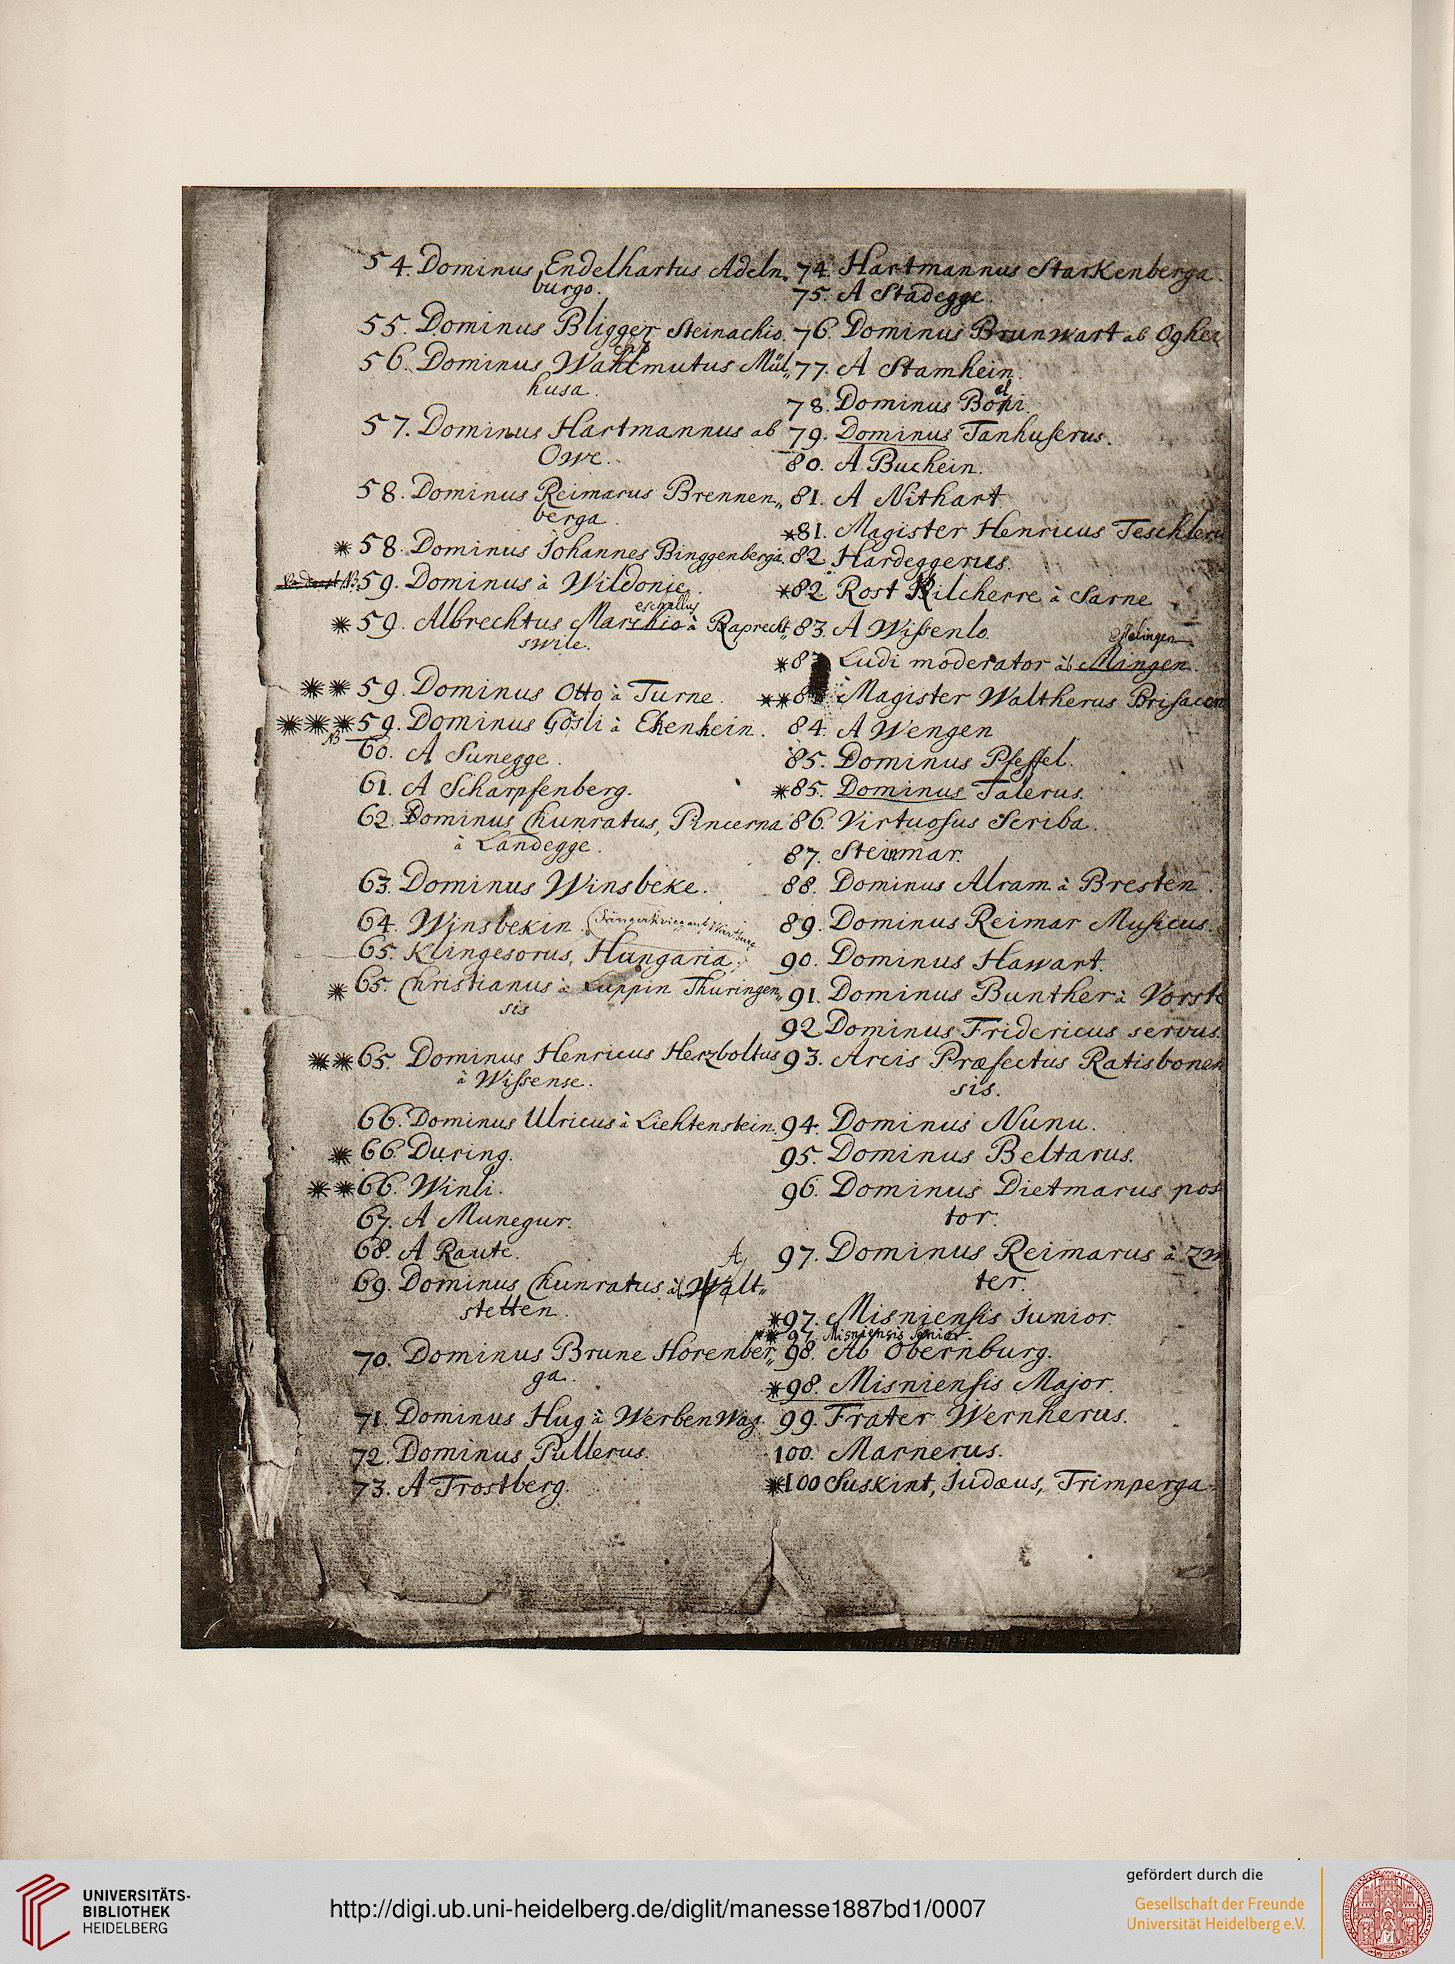 54. Dominus Endelhartus Adeln,
burgo.
55. Dominus Bligger Steinachio.
56. Dominus Wahtmutus Mül,,
husa.
57. Dominus Hartmannus ab
Owe.
58. Dominus Reimarus Brennen,,
berga.
* 58. Dominus Johannes Binggenberga.
59. Dominus à Wildonie.
eschallus
* 59. Albrechtus Marschio à Raprecht,,
swile.
** 59. Dominus Otto à Turne.
*** 59. Dominus Gösli à Ehenhein.
NB
60. A Sunegge.
61. A Scharpfenberg.
62. Dominus Chunratus, Pincerna
à Landegge.
63. Dominus Winsbeke.
64. Winsbekin. (Sängerkrieg auf Wartburg
65. Klingesorus, Hungaria.
* 65. Christianus à Luppin Thuringen,,
sis
** 65. Dominus Henricus Herzboltus
à Wissense.
66. Dominus Ulricus à Liehtenstein.
* 66. During.
** 66. Winli.
67. A Munegur.
68. A Raute.
69. Dominus Chunratus ab Alt,,
stetten.
70. Dominus Brune Horenber,,
ga.
71. Dominus Hug à Werbenwag.
72. Dominus Pullerus.
73. A Trostberg.
74. Hartmannus Starkenberga.
75. A Stadegge.
76. Dominus Brunwart ab Oghei
77. A Stamhein.
78. Dominus Boppi.
79. Dominus Tanhuserus.
80. A Buchein.
81. A Nithart
*81. Magister Henricus Teschleru
82. Hardeggerus.
*82. Rost Kilcherre à Sarne
83. A Wissenlo.
Esselingen
*83 Ludi moderator ab Mingen.
**83 Magister Waltherus Brisacen
84. A Wengen
85. Dominus Pfeffel.
*85. Dominus Talerus.
86. Virtuosus Scriba.
87. Steinmar.
88. Dominus Alram à Bresten.
89. Dominus Reimar Musicus.
90. Dominus Hawart.
91. Dominus Bunther à Vorste
92 Dominus Fridericus servus.
93. Arcis Præfectus Ratisbonen
sis.
94. Dominus Nunu.
95. Dominus Beltarus.
96. Dominus Dietmarus pos
tor.
97. Dominus Reimarus à Zwe
ter.
*97. Misniensis Junior.
** 97. Misniensis Senior.
98. Ab Obernburg.
*98. Misniensis Major.
99. Frater Wernherus.
100. Marnerus.
*100 Suskint, Judæus, Trimperga.
UNIVERSITÄTS-
BIBLIOTHEK
HEIDELBERG
http://digi.ub.uni-heidelberg.de/diglit/manesse1887bd1/0007
gefördert durch die
Gesellschaft der Freunde
Universität Heidelberg e.V.